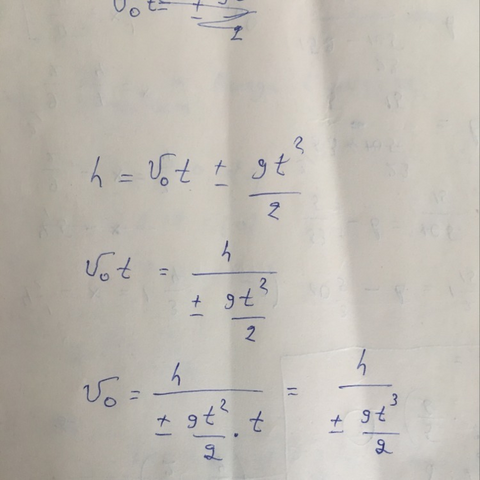 h = v₀t ± gt²/2
v₀t = h/(± gt²/2)
v₀ = h/(± gt²/2 · t) = h/(± gt³/2)